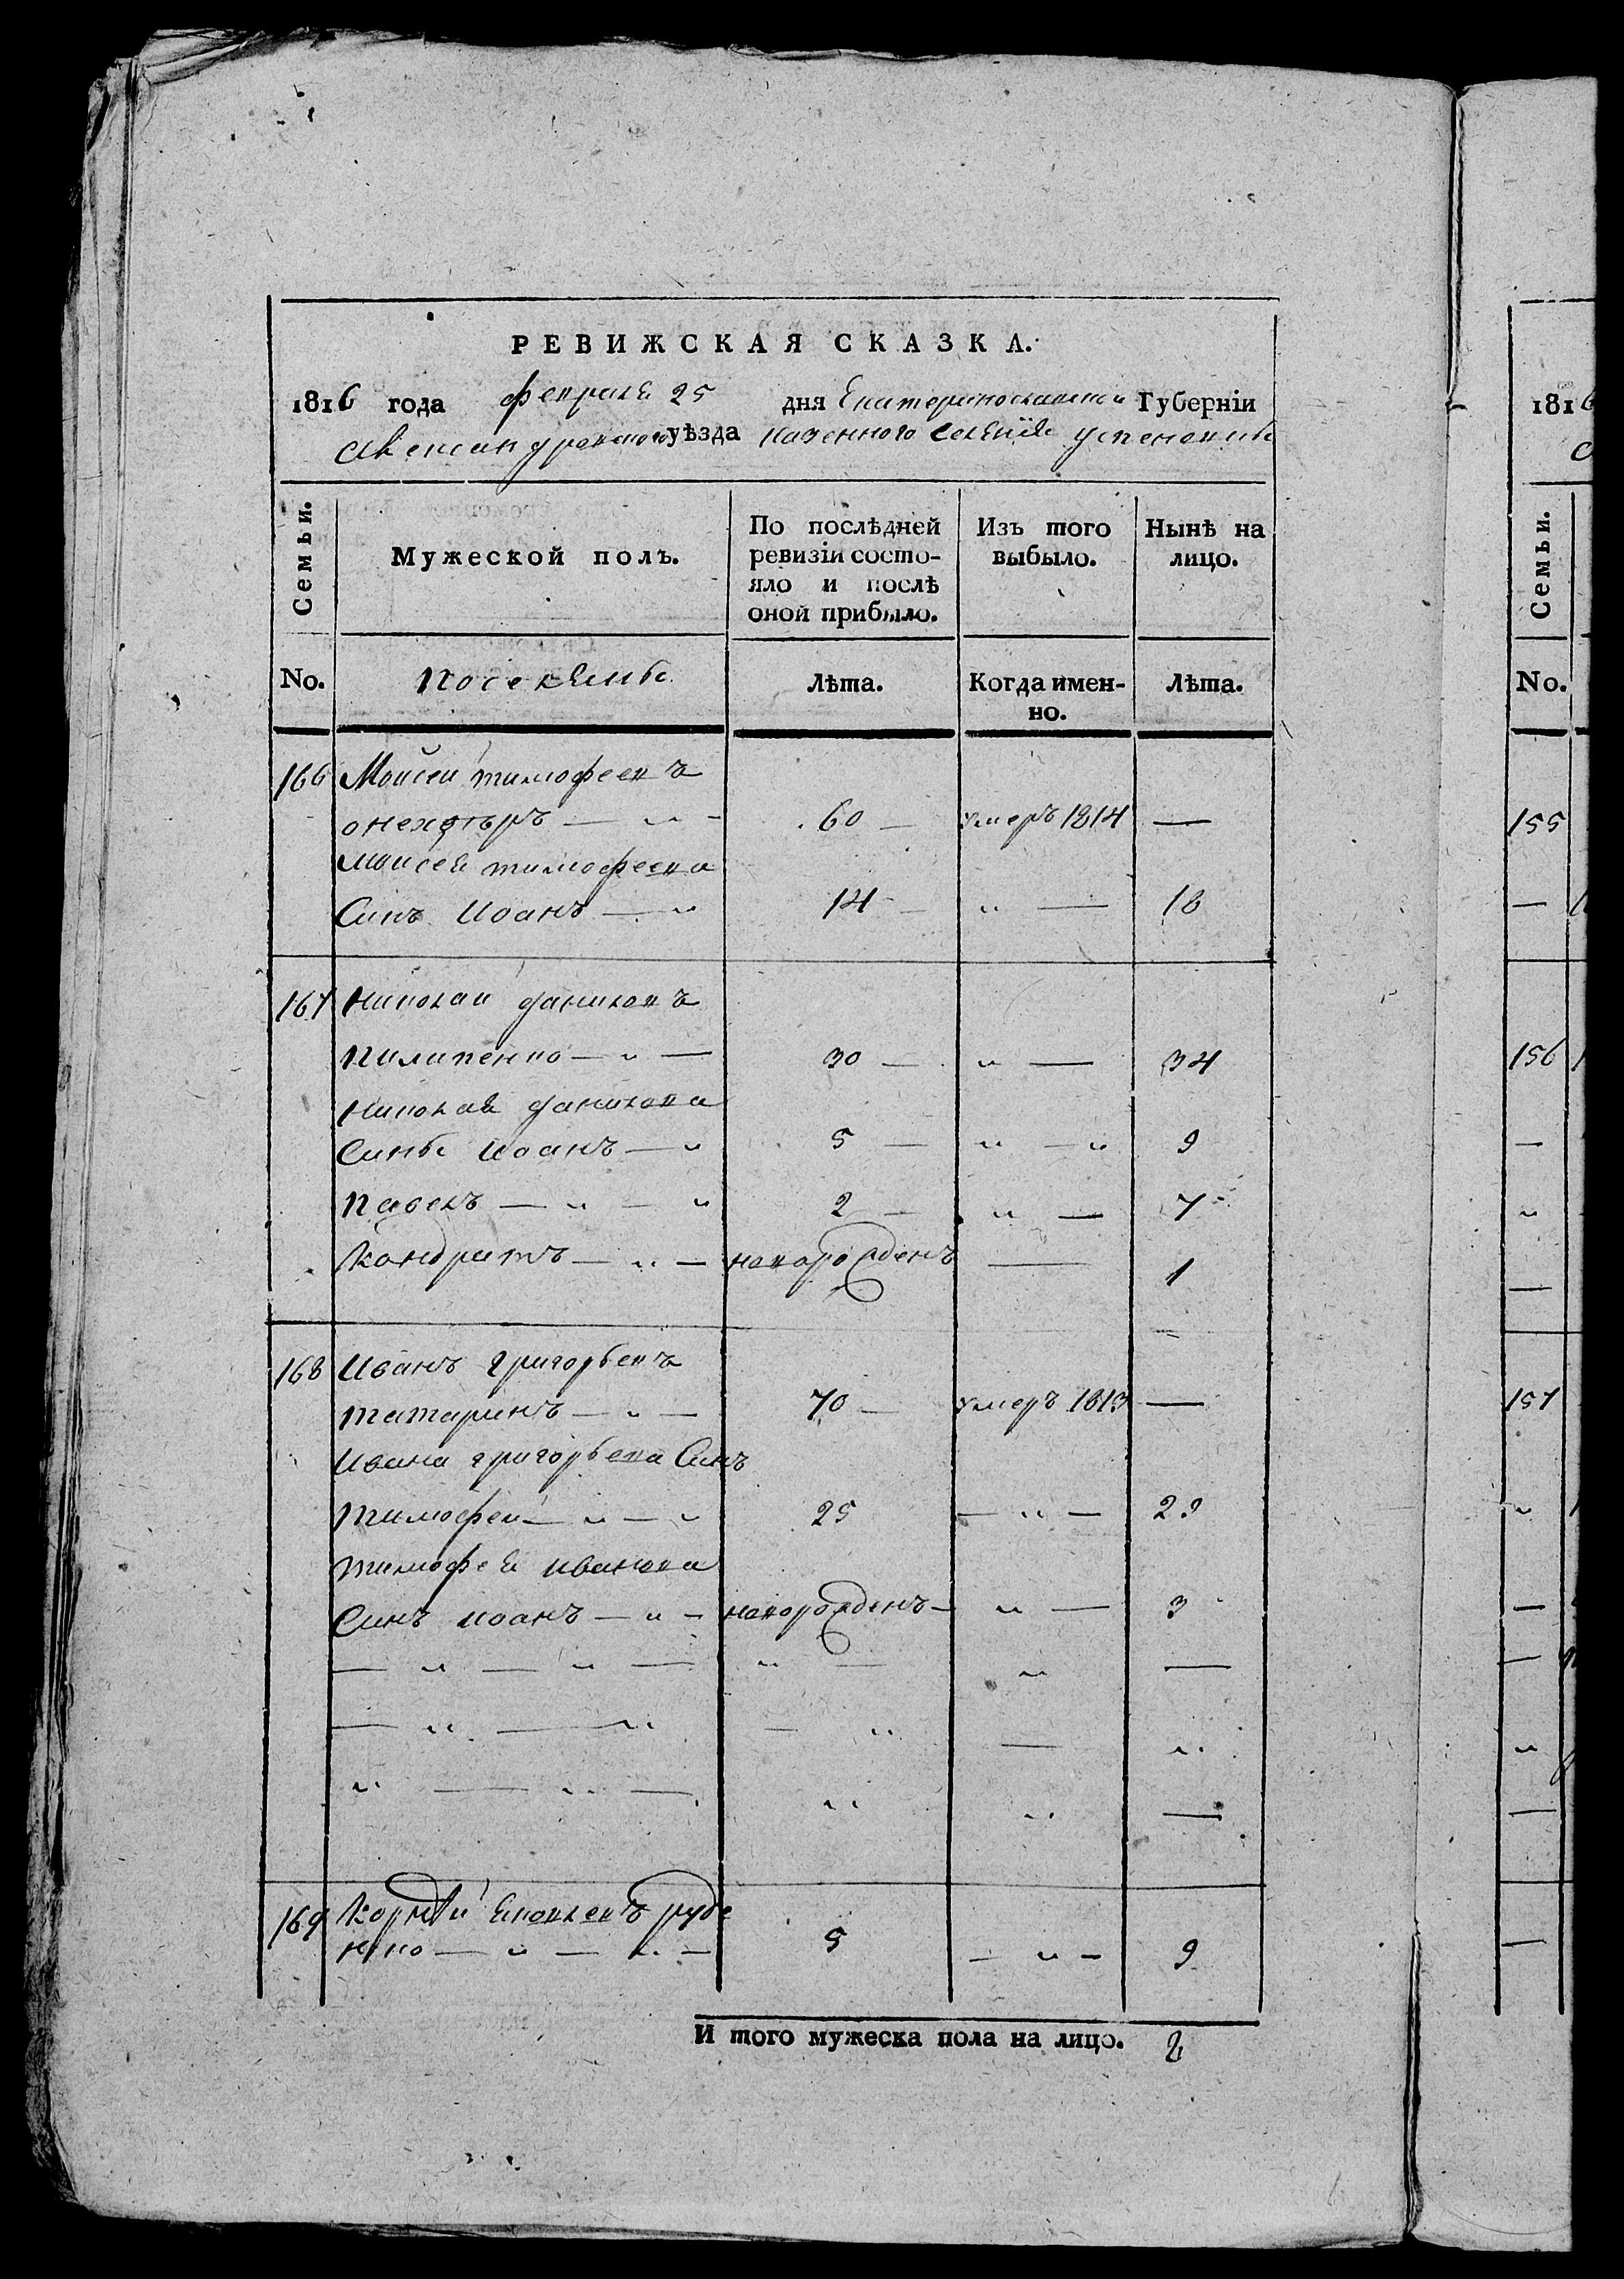 РЕВИЖСКАЯ СКАЗКА.
1816 года февраля 25 дня Екатеринославской Губерніи
Александровского уѣзда казенного селенія успеновки
Семьи. Мужеской полъ. По послѣдней ревизіи состо-яло и послѣ оной прибыло. Изъ того выбыло. Ныне на лицо.
No. поселяны Лѣта. Когда имен-но. Лѣта.
166 Моисей тимофеевъ
— 60 — умеръ 1814 —
моисея тимофеева
Синъ Иоанъ — 14 — „ — 18
167 Николай даниловъ
пилипенко — „ — 30 — „ — 34
николая данилова
Сины Иоанъ — „ 5 — „ — „ 9
павелъ — „ — „ 2 — „ — 7
Кондратъ — „ — новорожденъ — 1
168 Иванъ григорьевъ
татаринъ — „ — 70 — умеръ 1813 —
Ивана григорьева Синъ
тимофей — „ — „ 25 — „ — 29
тимофея иванова
Синъ иоанъ — „ — новорожденъ — „ — 3
— „ — „ — „ — „ —
— „ — „ — „ — „
„ — „ — „ „ —
169 Корнѣй руде
нко — „ — „ — 5 — „ — 9
И того мужеска пола на лицо.
1816
Семьи.
No.
155
—
156
—
„
—
157
„
—
—
„
—
—